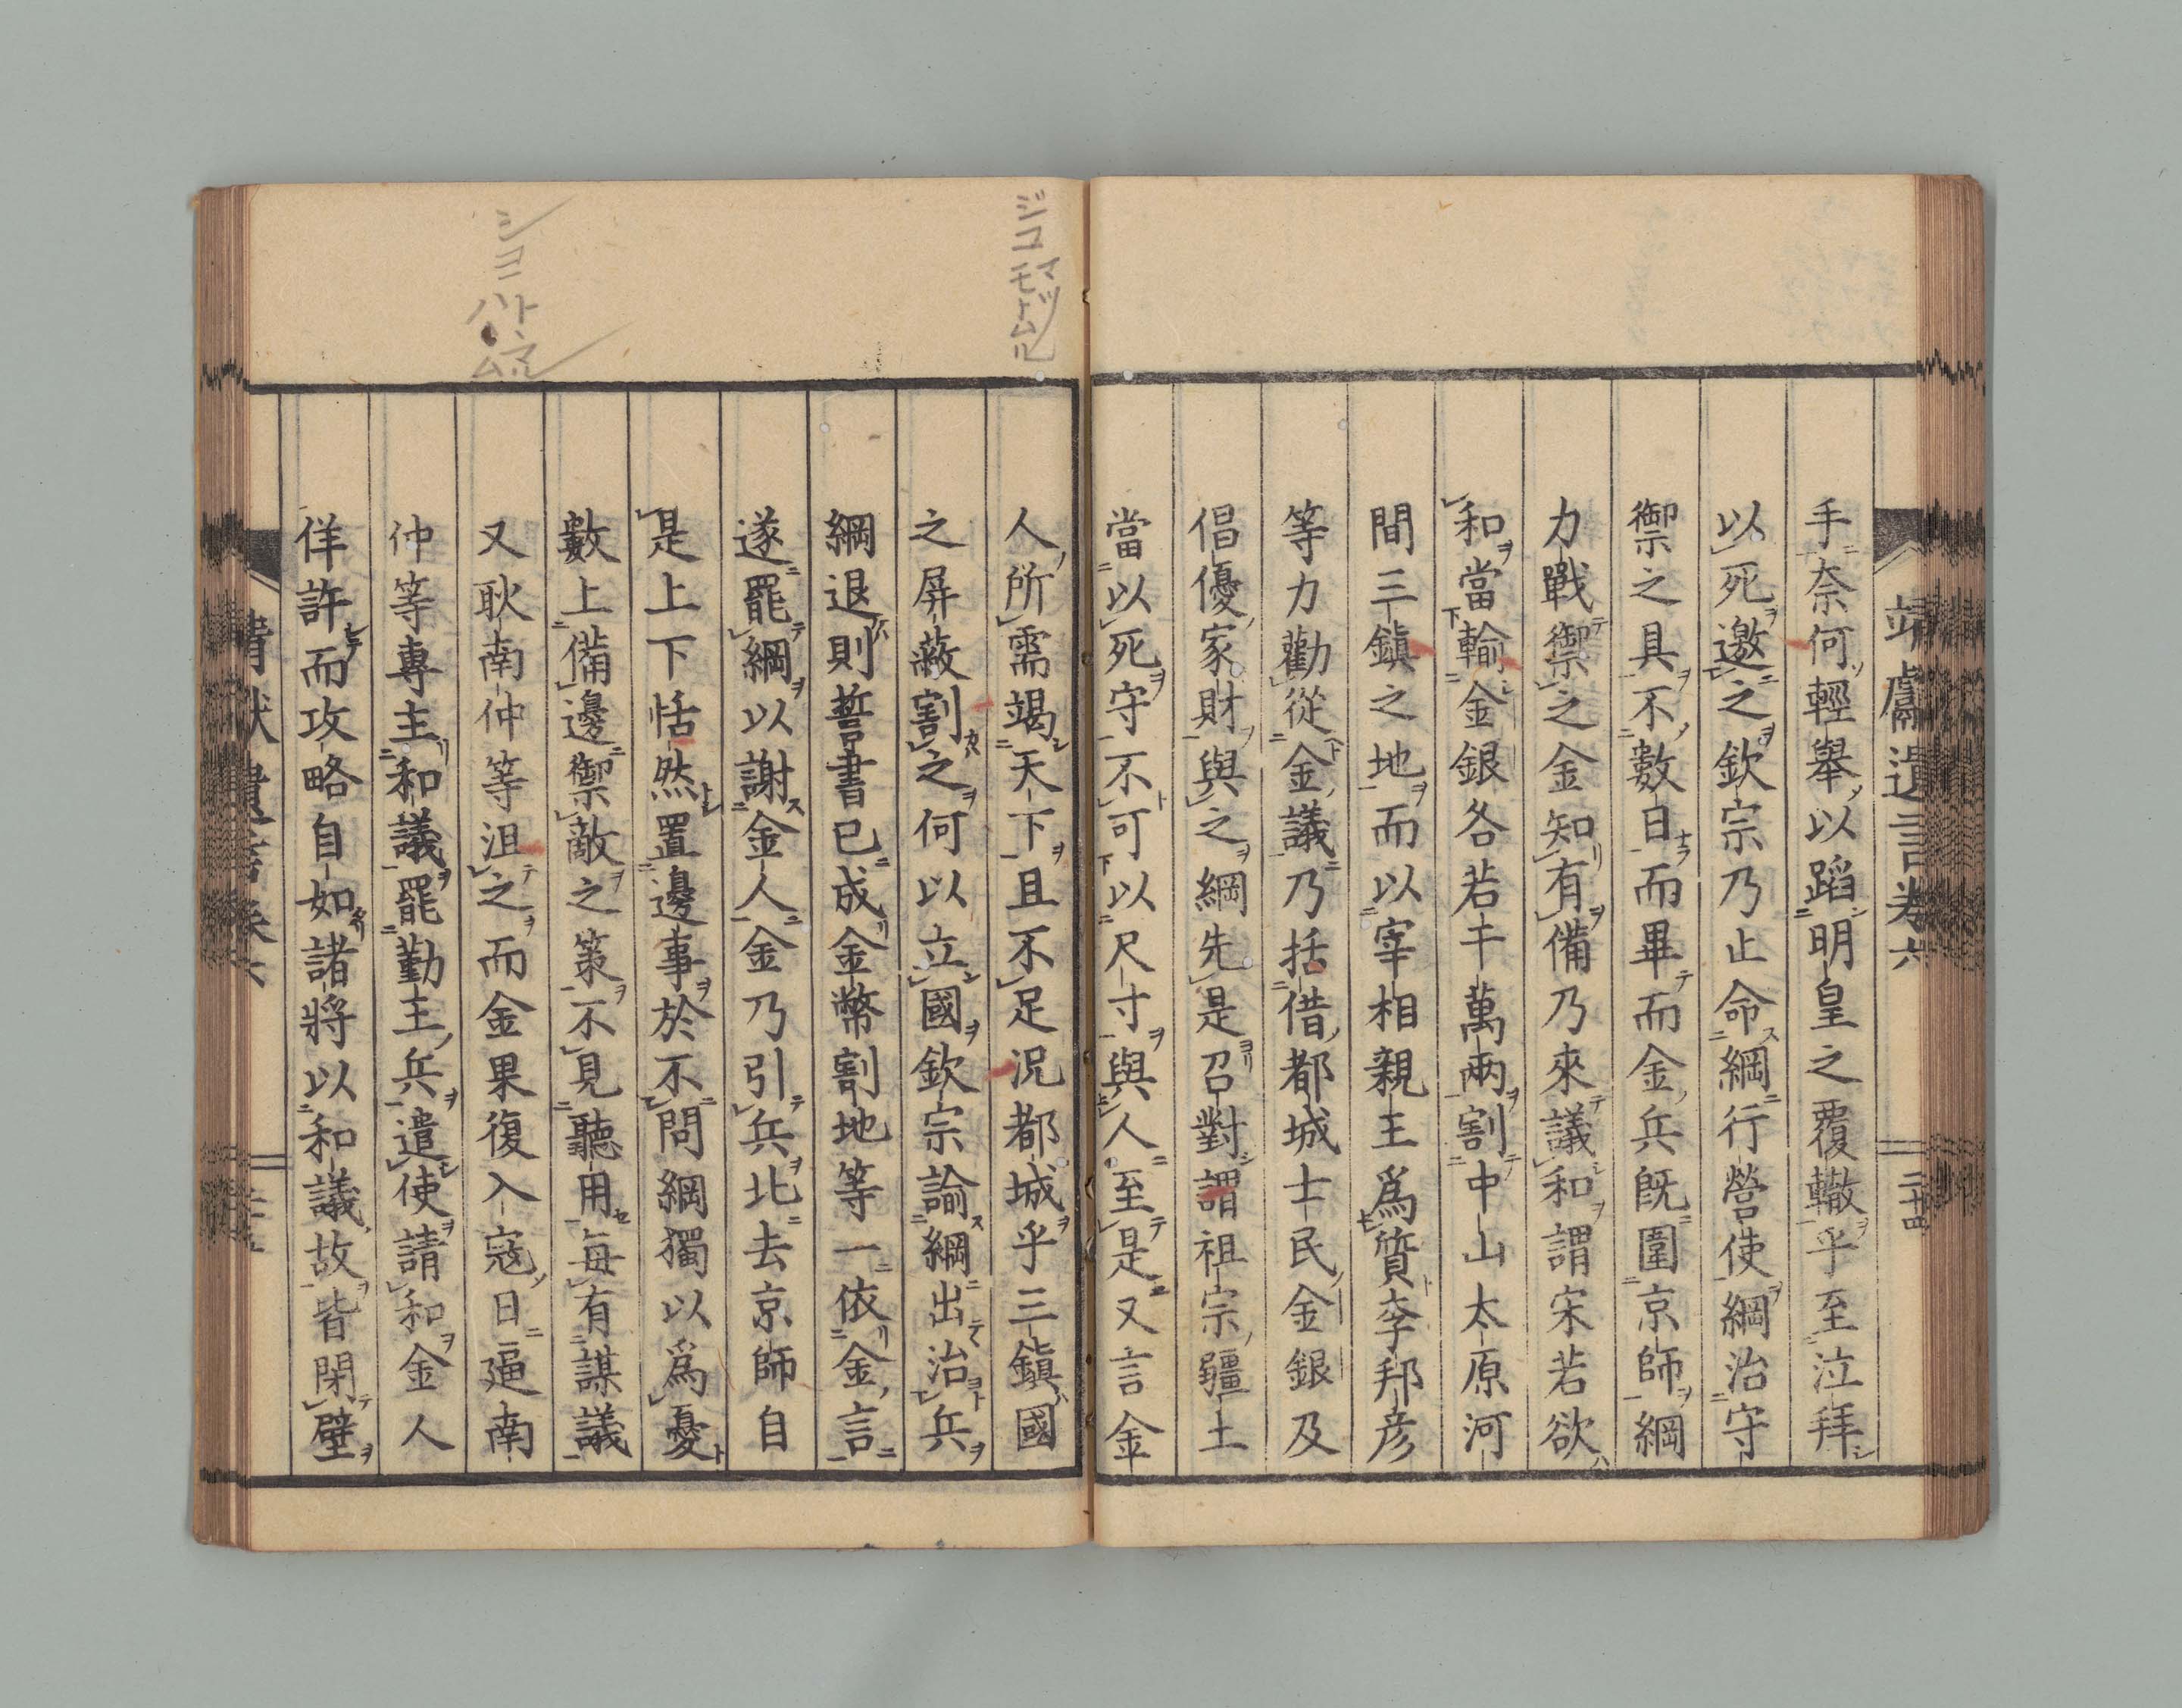 靖獻遺言卷六
二十四
手奈何輕舉以蹈明皇之覆轍乎至泣拜
以死邀之欽宗乃止命綱行營使綱治守
禦之具不數日而畢而金兵既圍京師綱
力戰禦之金知有備乃來議和謂宋若欲
和當輸金銀各若干萬兩割中山太原河
間三鎮之地而以宰相親王爲質李邦彥
等力勸從金議乃括借都城士民金銀及
倡優家財與之綱先是召對謂祖宗疆土
當以死守不可以尺寸與人至是又言金
ジコマツモトムル
人所需竭天下且不足況都城乎三鎮國
之屏蔽割之何以立國欽宗諭綱出治兵
綱退則誓書已成金幣割地等一依金言
遂罷綱以謝金人金乃引兵北去京師自
是上下恬然置邊事於不問綱獨以爲憂
數上備邊禦敵之策不見聽用每有謀議
又耿南仲等沮之而金果復入寇日逼南
仲等專主和議罷勤王兵遣使請和金人
佯許而攻略自如諸將以和議故皆閉壁